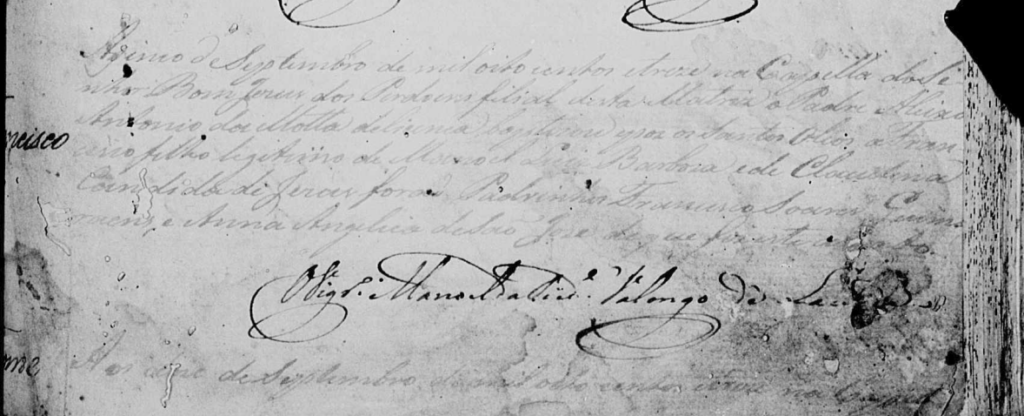 de Septembro de mil oito centos etreze na Cappella do Se
nhor Bom Jesus dos Perdoens filial desta Matriz o Padre Aleixo
Antonio da Motta delicenia baptizou epoz os Santos Oleos a Fran
ncisco
cisco filho legitimo de Manoel Luis Barboza ede Claudina
Candida de Jesus forão Padrinhos Francisco Soares
e Anna Angelica de São José de que fiz este
O Vigr.º Manoel Valongo de
de Septembro de mil oito centos etreze na